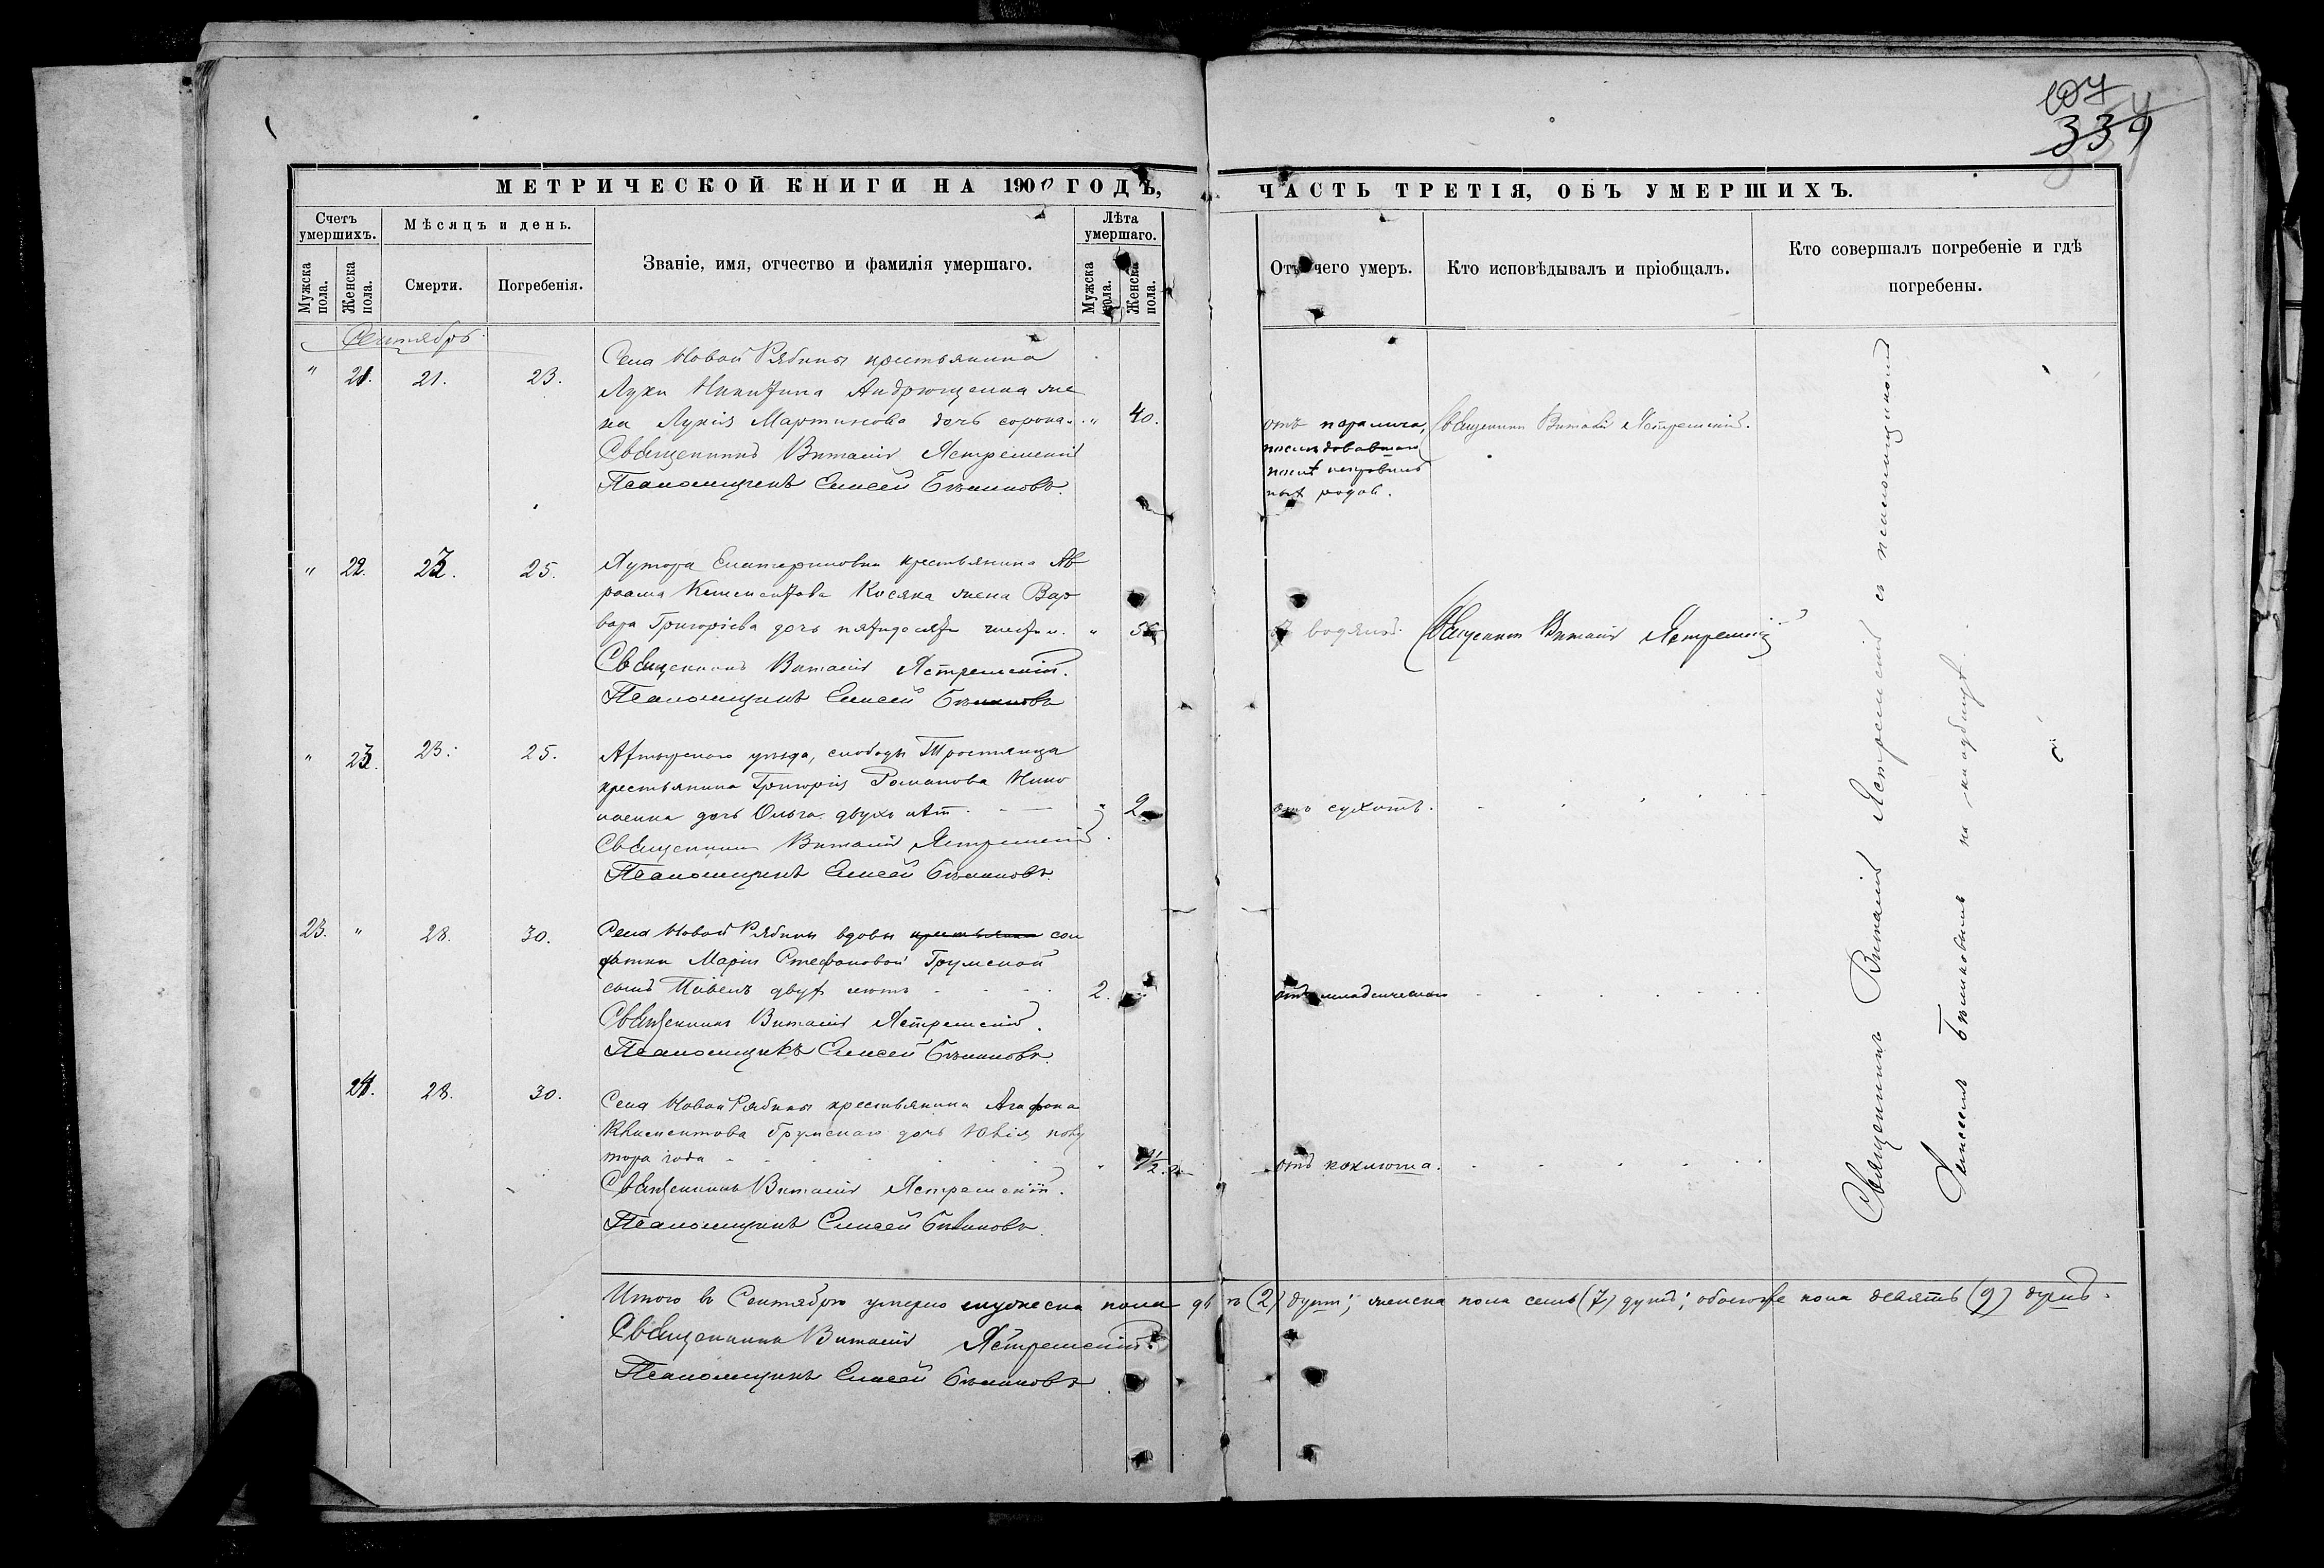 107
334
МЕТРИЧЕСКОЙ КНИГИ НА 1900 ГОДЪ, ЧАСТЬ ТРЕТІЯ, ОБЪ УМЕРШИХЪ.
Счетъ умершихъ.
Мѣсяцъ и день.
Званіе, имя, отчество и фамилія умершаго.
Лѣта умершаго.
Отъ чего умеръ.
Кто исповѣдывалъ и пріобщалъ.
Кто совершалъ погребеніе и гдѣ погребены.
Мужска пола.
Женска пола.
Смерти.
Погребенія.
Мужска пола.
Женска пола.
Сентябрь.
" 21. 21. 23.
Села Новой Рябины крестьянина
Луки Никитина Андрющенка же
на Лукія Мартинова дочь сорока. " 40.
Священникъ Виталій Ястремскій
Псаломщикъ Елисей Бѣлиновъ.
отъ паралича,
последовавшаго
послѣ неправиль
ныхъ родовъ.
Священникъ Виталій Ястремскій.
" 22. 23. 25.
Хутора Екатериновки крестьянина Ав
раама Климентова Косяка жена Вар
вара Григоріева дочь пятидесяти шести. " 56
Священникъ Виталій Ястремскій.
Псаломщикъ Елисей Бѣлиновъ
от водяной.
Священникъ Виталій Ястремскій
" 23. 23. 25.
Ахтырскаго уѣзда, слободы Тростянца
крестьянина Григорія Романова Нико
лаенка дочь Ольга двухъ лѣтъ " 2
Священникъ Виталій Ястремскій.
Псаломщикъ Елисей Бѣлиновъ.
отъ сухотъ.
23. " 28. 30.
Села Новой Рябины вдовы крестьянки сол
датки Маріи Стефановой Грумской
сынъ Павелъ двухъ лѣтъ 2. "
Священникъ Виталій Ястремскій.
Псаломщикъ Елисей Бѣлиновъ.
отъ младенческаго
24. 28. 30.
Села Новой Рябины крестьянина Агафона
Климентова Грумскаго дочь Ювія полу
тора года " 1½
Священникъ Виталій Ястремскій.
Псаломщикъ Елисей Бѣлиновъ.
отъ коклюша.
Священникъ Виталій Ястремскій съ псаломщикомъ
Елисеемъ Бѣлиновымъ на кладбищѣ.
Итого въ Сентябрѣ умерло мужеска пола двѣ (2) души; женска пола семь (7) душъ; обоегоже пола девять (9) душъ.
Священникъ Виталій Ястремскій.
Псаломщикъ Елисей Бѣлиновъ